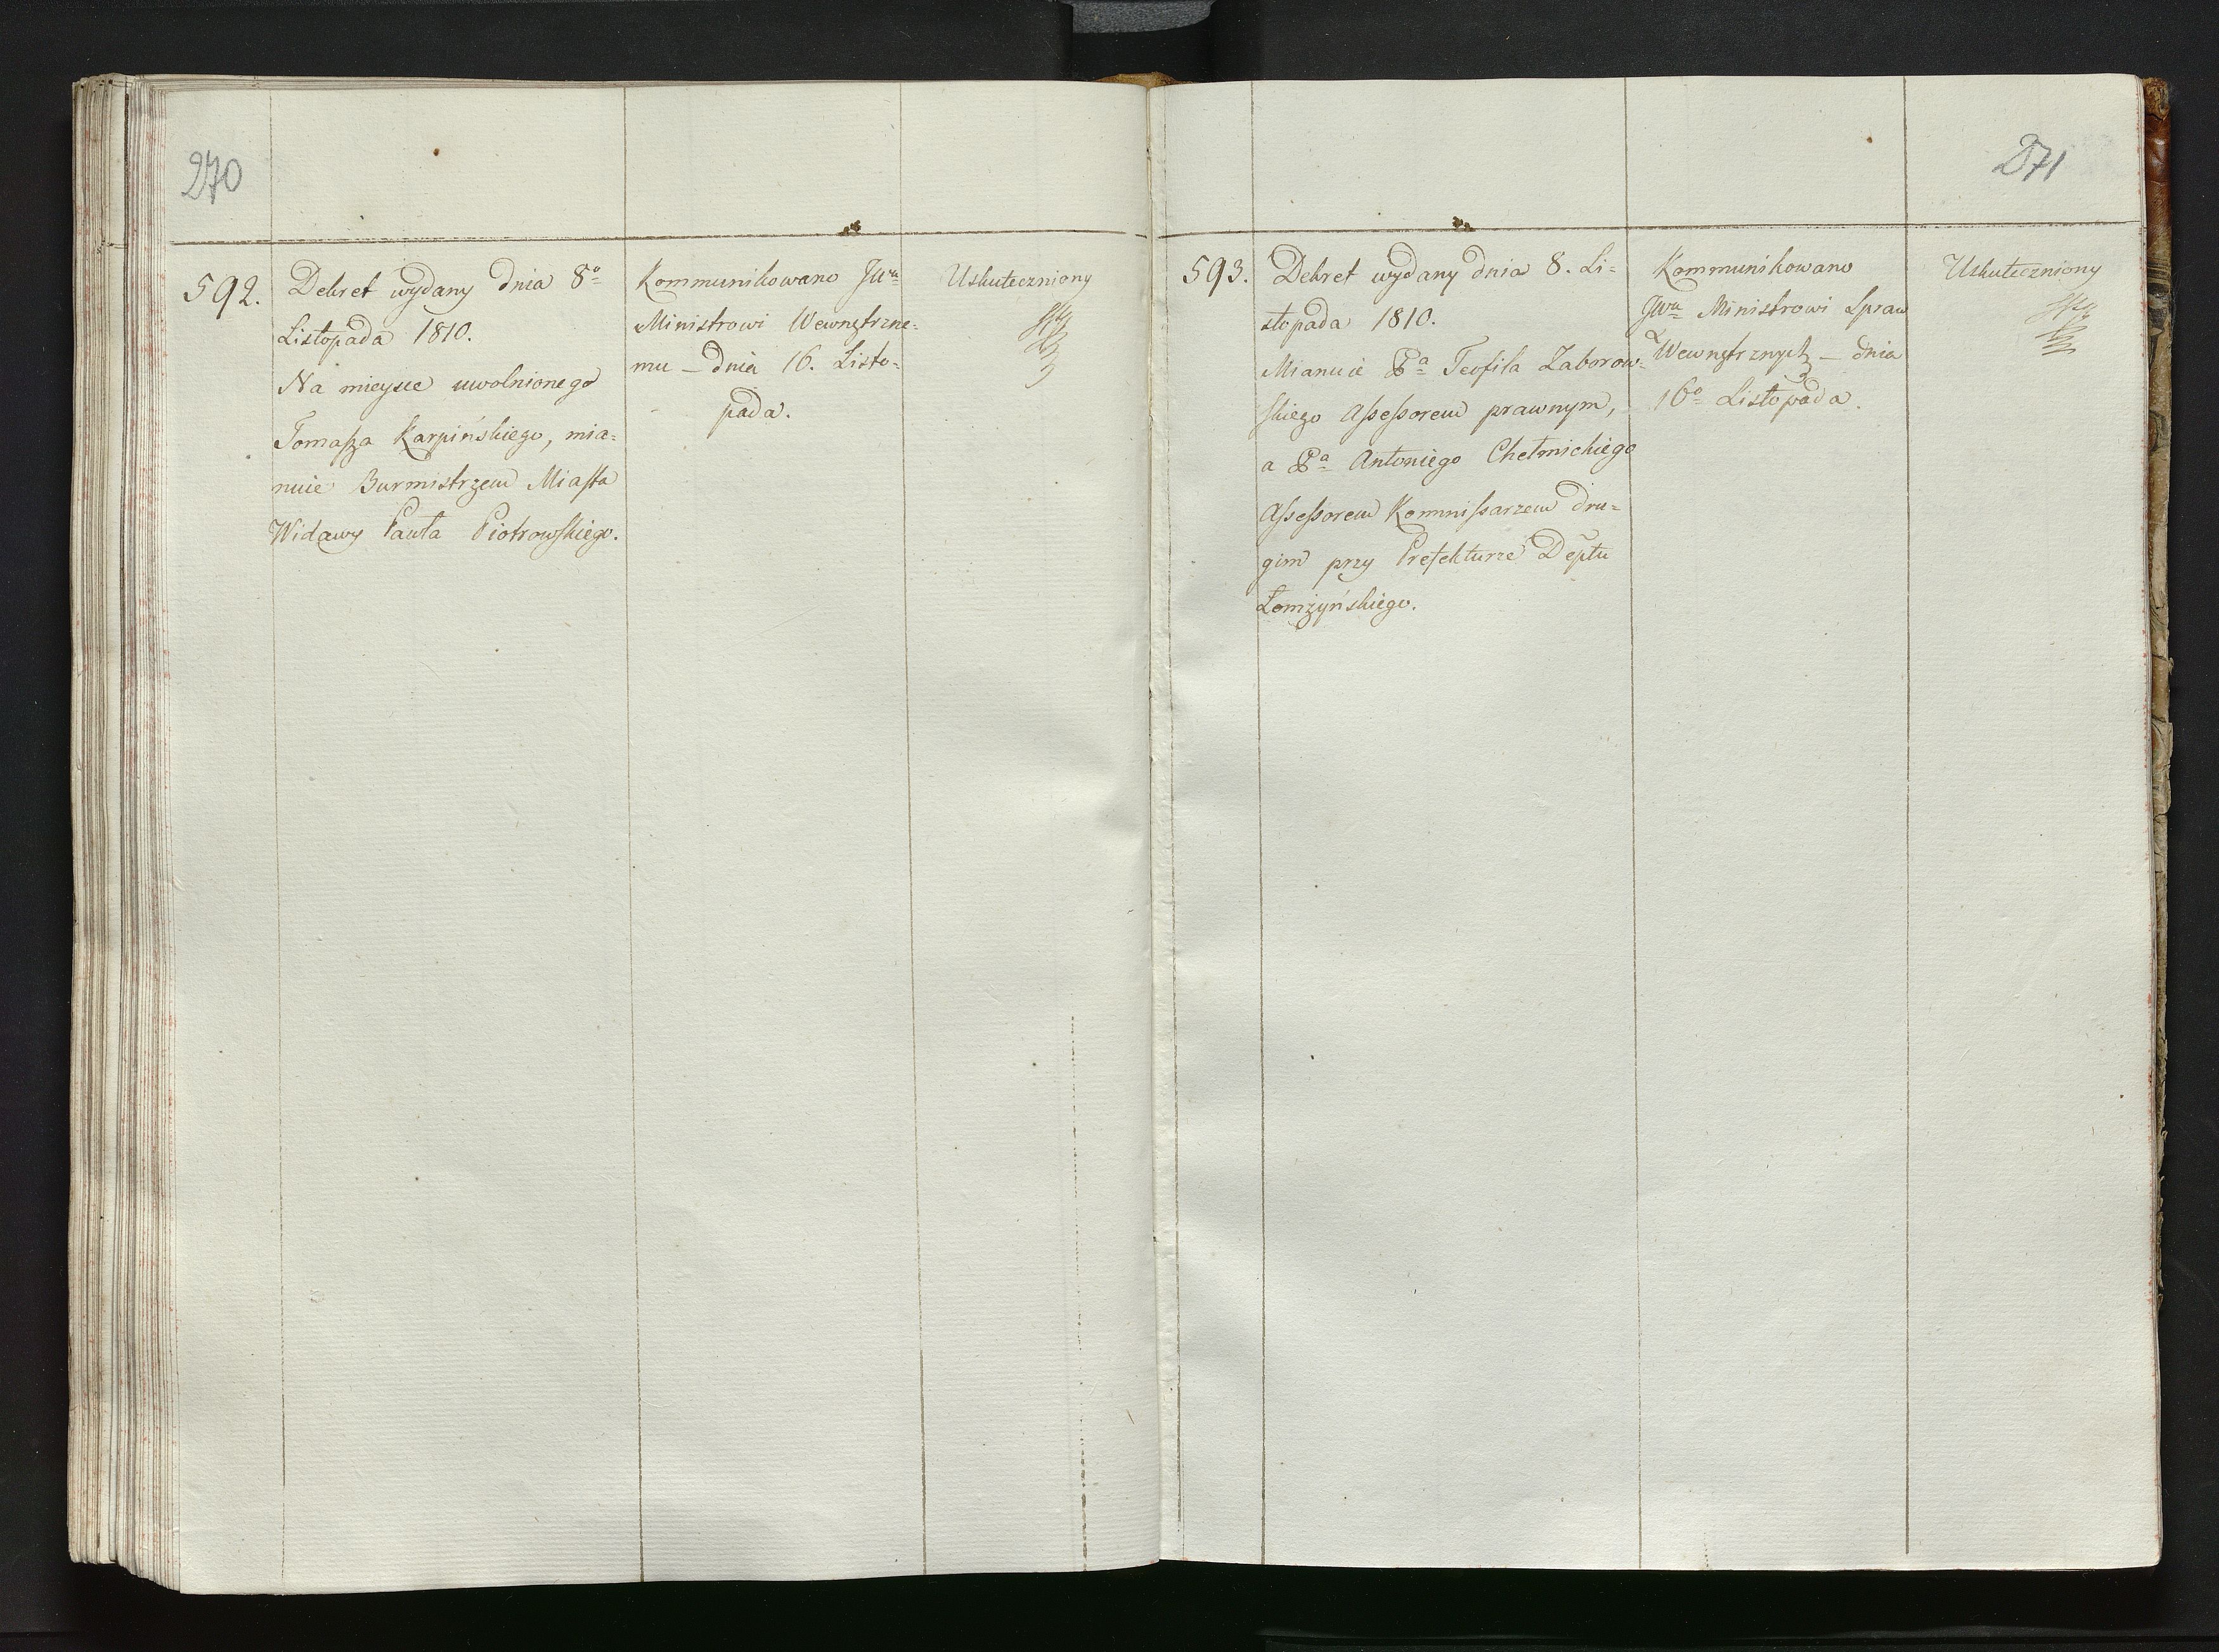 270
592.
Dekret wydany dnia 8º
Listopada 1810.
Na mieysce uwolnionego
Tomaſza Karpińskiego, mia=
nuie Burmistrzem Miaſta
Widawy Pawła Piotrowſkiego.
Kommunikowano JWu
Ministrowi Wewnętrzne=
mu – dnia 16. Listo=
pada.
Uskuteczniony
271
593.
Dekret wydany dnia 8. Li=
stopada 1810.
Mianuie Pª Teofila Zaborow=
ſkiego Aſseſsorem prawnym,
a Pª Antoniego Chełmickiego
Aſseſsorem Kommiſsarzem dru=
gim przy Prefekturze Deptu
Łomżyńskiego.
Kommunikowano
JWu Ministrowi Spraw
Wewnętrznych – dnia
16º Listopada.
Uskuteczniony